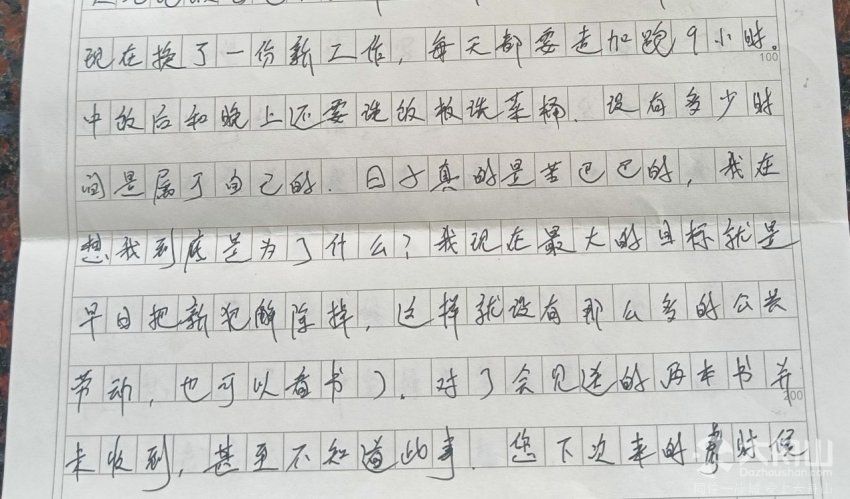 现在换了一份新工作，每天都要走加跑9小时。
100
中放后和晚上还要洗饭板洗菜桶．没有多少时
间是属于自己的．日子真的是苦巴巴的，我在
想我到底是为了什么？我现在最大的目标就是
早日把新犯解除掉，这样就没有那么多的公共
劳动，也可以看书了．对了会见送的两本书并
200
未收到，甚至不知道此事．您下次来的时候
大佛山
Dazhoushan.com